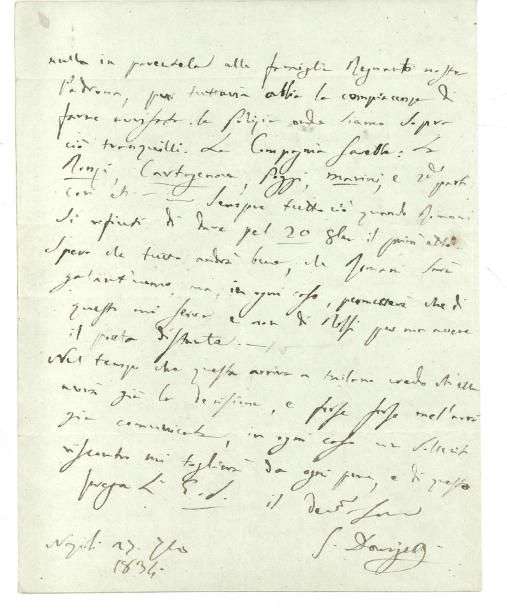 nulla in parentela alla famiglia Regnante nostra
Padrona, pur tuttavia abbia la compiacenza di
farne avvisata la Polizia onde siamo sopra
ciò tranquilli. La Compagnia sarebbe: La
Ronzi, Cartagenova, Poggi, Marini, e 2de parti
così etc. Sempre tutto ciò quando Romani
si rifiuti di dare pel 20 8bre il primo atto
Spero che tutto andrà bene, che Romani sarà
galantuomo, ma, in ogni caso, permetterà che di
questo mi serva e non di Rossi per non avere
il poeta distante.
Nel tempo che questa arriva a Milano credo ch'ella
avrà già la decisione, e forse forse me l'avrà
già comunicata, in ogni caso un sollecito
riscontro mi toglierà da ogni pena, e di questo
prega
il dev. Servo
Napoli 27. 7bre
G. Donizetti
1834.